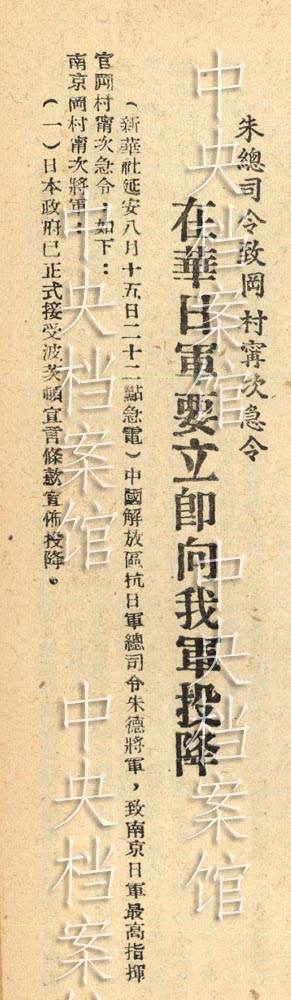 朱總司令致岡村寗次急令
在華日軍要立卽向我軍投降
（新華社延安八月十五日二十二點急電）中國解放區抗日軍總司令朱德將軍，致南京日軍最高指揮
官岡村甯次急令，如下：
南京岡村甯次將軍：
（一）日本政府已正式接受波茨頓宣言條款宣佈投降。
中央档案馆
中央档案馆
中央档案馆
中央档案馆